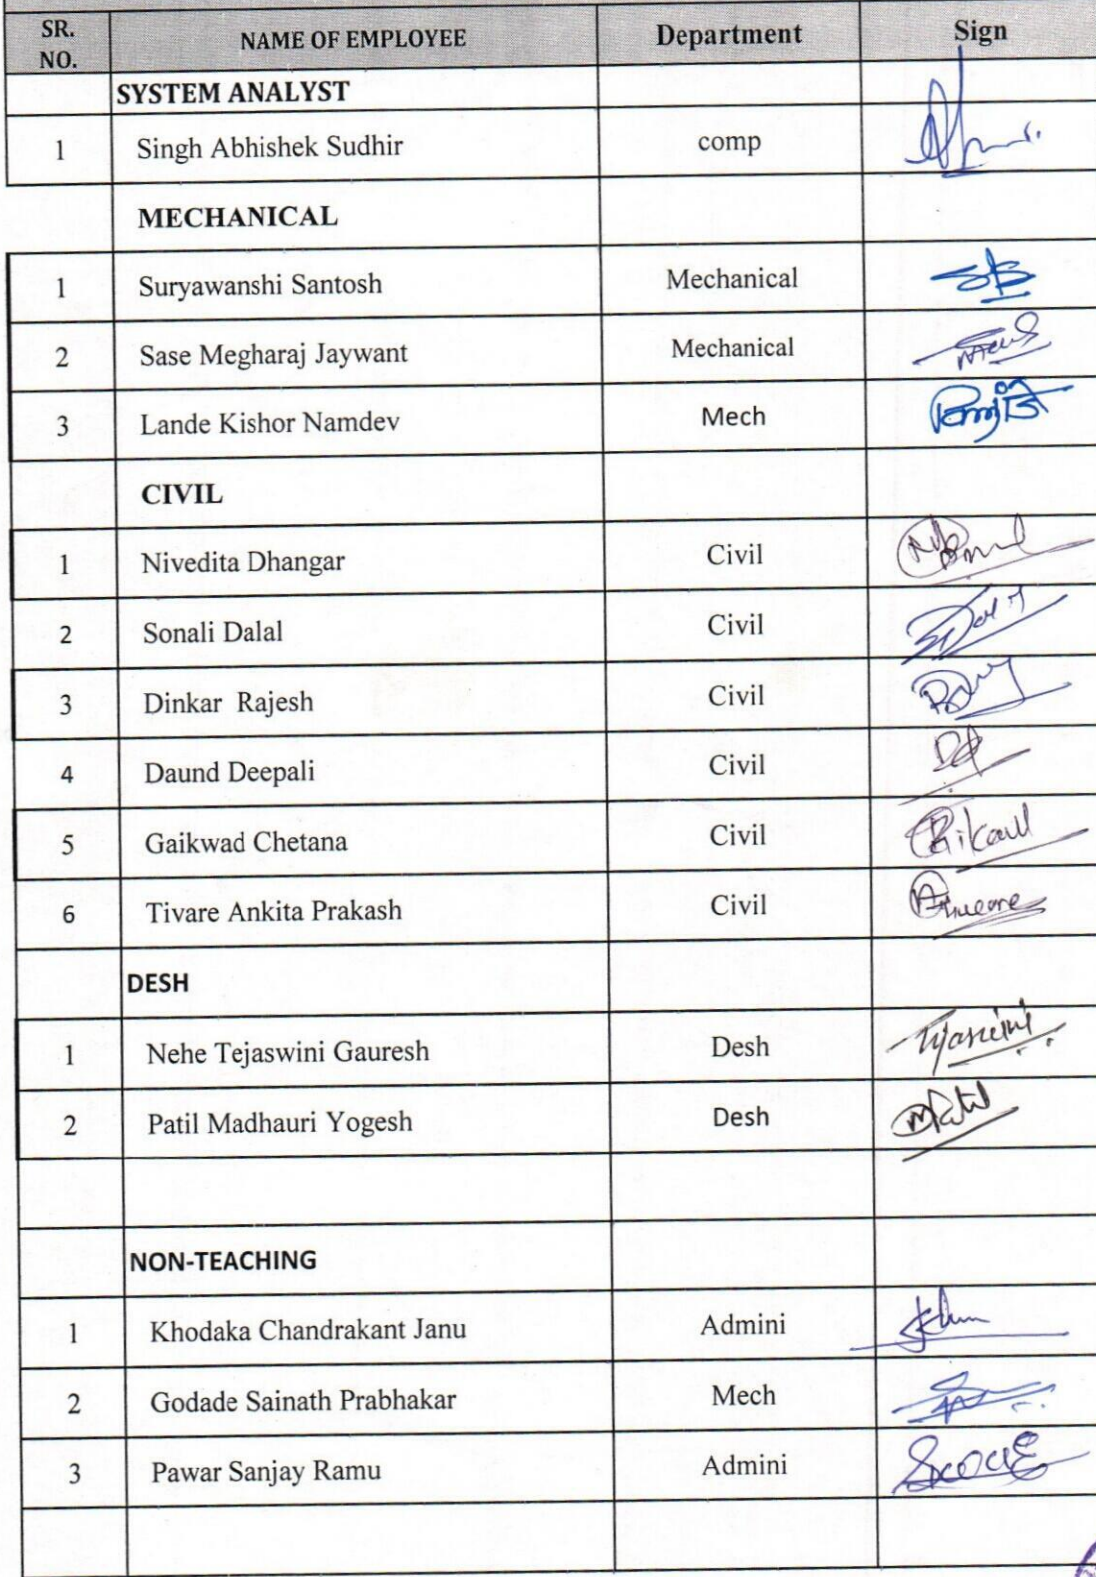 SR. NO. NAME OF EMPLOYEE Department Sign
SYSTEM ANALYST
1 Singh Abhishek Sudhir comp
MECHANICAL
1 Suryawanshi Santosh Mechanical
2 Sase Megharaj Jaywant Mechanical
3 Lande Kishor Namdev Mech
CIVIL
1 Nivedita Dhangar Civil
2 Sonali Dalal Civil
3 Dinkar Rajesh Civil
4 Daund Deepali Civil
5 Gaikwad Chetana Civil
6 Tivare Ankita Prakash Civil
DESH
1 Nehe Tejaswini Gauresh Desh
2 Patil Madhauri Yogesh Desh
NON-TEACHING
1 Khodaka Chandrakant Janu Admini
2 Godade Sainath Prabhakar Mech
3 Pawar Sanjay Ramu Admini